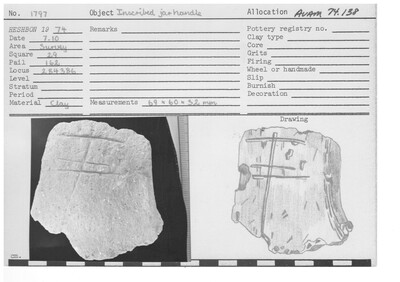 No. 1797 Object Inscribed jar handle Allocation AUAM 74.138
HESHBON 19 74
Date 7.10
Area Survey
Square 29
Pail 162
Locus
Level
Stratum
Period
Material Clay
Remarks
Measurements 69 × 60 × 32 mm
Pottery registry no.
Clay type
Core
Grits
Firing
Wheel or handmade
Slip
Burnish
Decoration
Drawing
cm.